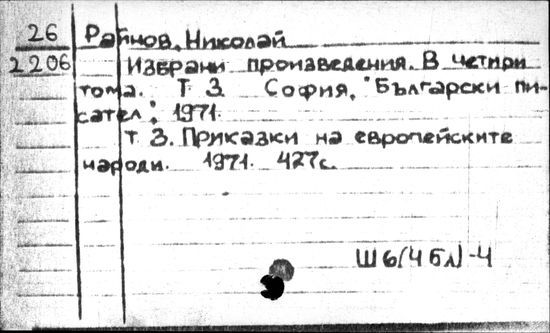 26 Райнов, Николай
2206 Избрани произведения. В четири
тома. Т 3 София, "Български пи-
сател", 1971.
Т 3. Приказки на европейските
народи. 1971. 427с.
Ш6(4Бл)-4